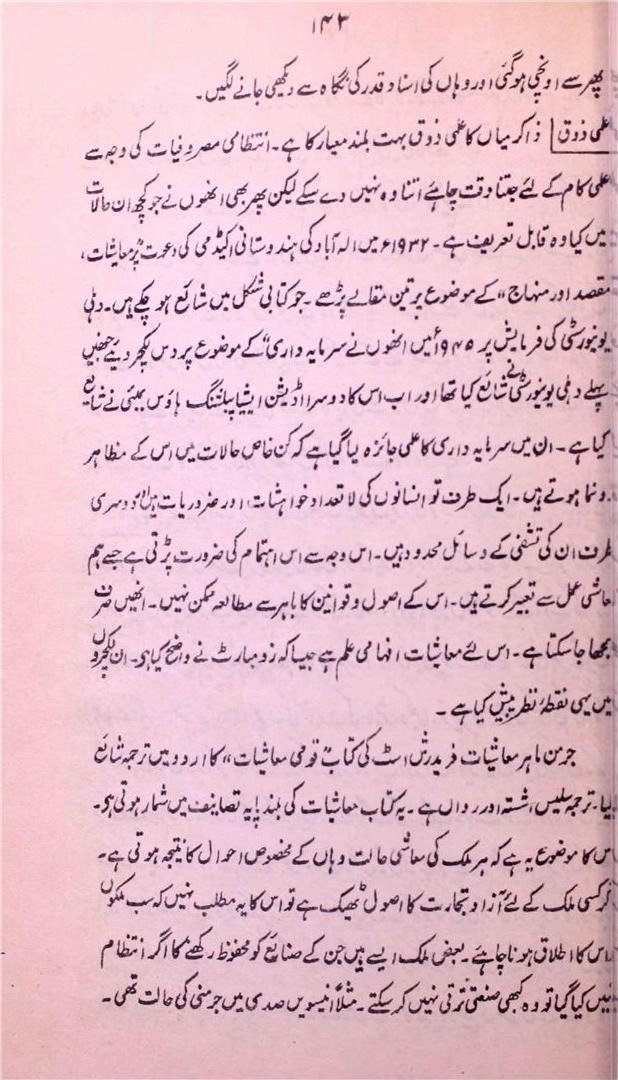 ۱۴۳
پھر سے اونچی ہوگئی اور وہاں کی اسناد قدر کی نگاہ سے دیکھی جانے لگیں۔
علمی ذوق ذاکر میاں کا علمی ذوق بہت بلند معیار کا ہے۔ انتظامی مصروفیات کی وجہ سے
علمی کام کے لئے جتنا وقت چاہئے اتنا وہ نہیں دے سکے لیکن پھر بھی انھوں نے جو کچھ ان حالات
میں کیا وہ قابل تعریف ہے۔ ۱۹۳۲ء میں الہ آباد کی ہندوستانی اکیڈمی کی دعوت پر "معاشیات،
مقصد اور منہاج" کے موضوع پر تین مقالے پڑھے۔ جو کتابی شکل میں شائع ہو چکے ہیں۔ دہلی
یونیورسٹی کی فرمایش پر ۱۹۴۵ء میں انھوں نے "سرمایہ داری" کے موضوع پر دس لکچر دیئے جنھیں
پہلے دہلی یونیورسٹی نے شائع کیا تھا اور اب اس کا دوسرا اڈیشن ایشیا پبلشنگ ہاؤس بمبئی نے شایع
کیا ہے۔ ان میں سرمایہ داری کا علمی جائزہ لیا گیا ہے کہ کن خاص حالات میں اس کے مظاہر
رونما ہوتے ہیں۔ ایک طرف تو انسانوں کی لا تعداد خواہشات اور ضروریات ہیں اور دوسری
طرف ان کی تشفی کے وسائل محدود ہیں۔ اس وجہ سے اس اہتمام کی ضرورت پڑتی ہے جسے ہم
معاشی عمل سے تعبیر کرتے ہیں۔ اس کے اصول و قوانین کا باہر سے مطالعہ ممکن نہیں۔ انھیں صرف
سمجھا جاسکتا ہے۔ اس لئے معاشیات افہامی علم ہے جیسا کہ زومبارٹ نے واضح کیا ہی۔ ان لکچروں
میں یہی نقطۂ نظر پیش کیا ہے۔
جرمن ماہر معاشیات فریدرش لسٹ کی کتاب "قومی معاشیات" کا اردو میں ترجمہ شائع
کیا۔ ترجمہ سلیس، شستہ اور رواں ہے۔ یہ کتاب معاشیات کی بلند پایہ تصانیف میں شمار ہوتی ہی۔
اس کا موضوع یہ ہے کہ ہر ملک کی معاشی حالت وہاں کے مخصوص احوال کا نتیجہ ہوتی ہے۔
اگر کسی ملک کے لئے آزاد تجارت کا اصول ٹھیک ہے تو اس کا یہ مطلب نہیں کہ سب ملکوں
پر اس کا اطلاق ہونا چاہئے۔ بعض ملک ایسے ہیں جن کے صنایع کو محفوظ رکھنے کا اگر انتظام
نہیں کیا گیا تو وہ کبھی صنعتی ترقی نہیں کر سکتے۔ مثلاً انیسویں صدی میں جرمنی کی حالت تھی۔